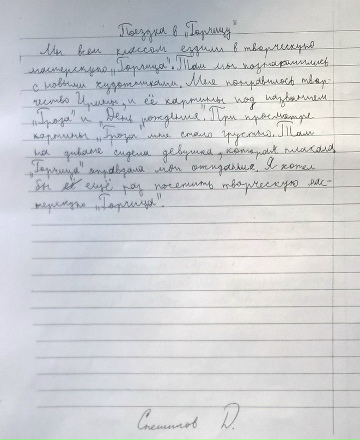 Поездка в „Горницу"
Мы всем классом ездили в творческую
мастерскую „Горница". Там мы познакомились
с новыми художниками. Мне понравилось твор-
чество Ирины, и её картины под названием
„Гроза" и „День рождения". При просмотре
картины „Гроза мне стало грустно. Там
на диване сидела девушка, которая плакала.
„Горница" оправдала мои ожидания. Я хотел
бы ещё раз посетить творческую мас-
терскую „Горница".
Спешилов Д.